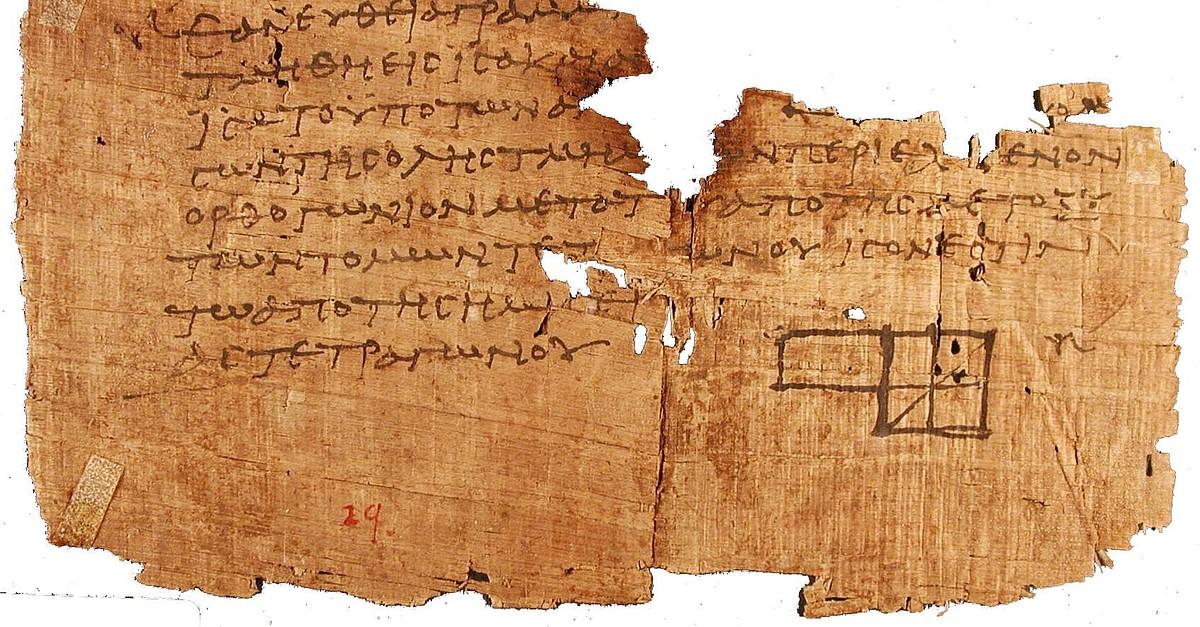 ΕΑΝ ΕΥΘΕΙΑ ΓΡΑΜΜ
ΤΜΗΘΗ ΕΙC ΙCΑ Κ
ΙCΑ ΤΟ ΥΠΟ ΤΩΝ ΑΝ
CΩΝ ΤΗC ΟΛΗC ΤΜΗΜ ΩΝ ΠΕΡΙΕΧ ΕΝΟΝ
ΟΡΘΟΓΩΝΙΟΝ ΜΕΤΑ ΤΟΥ ΑΠΟ ΤΗC ΜΕΤΟΞΥ
ΤΩΝ ΤΟΜΩΝ ΤΕΤ ΩΝΟΥ ΙCΟΝ ΕCΤΙΝ
ΤΩ ΑΠΟ ΤΗC ΗΜΙ
ΑC ΤΕΤΡΑΓΩΝΟΥ
29